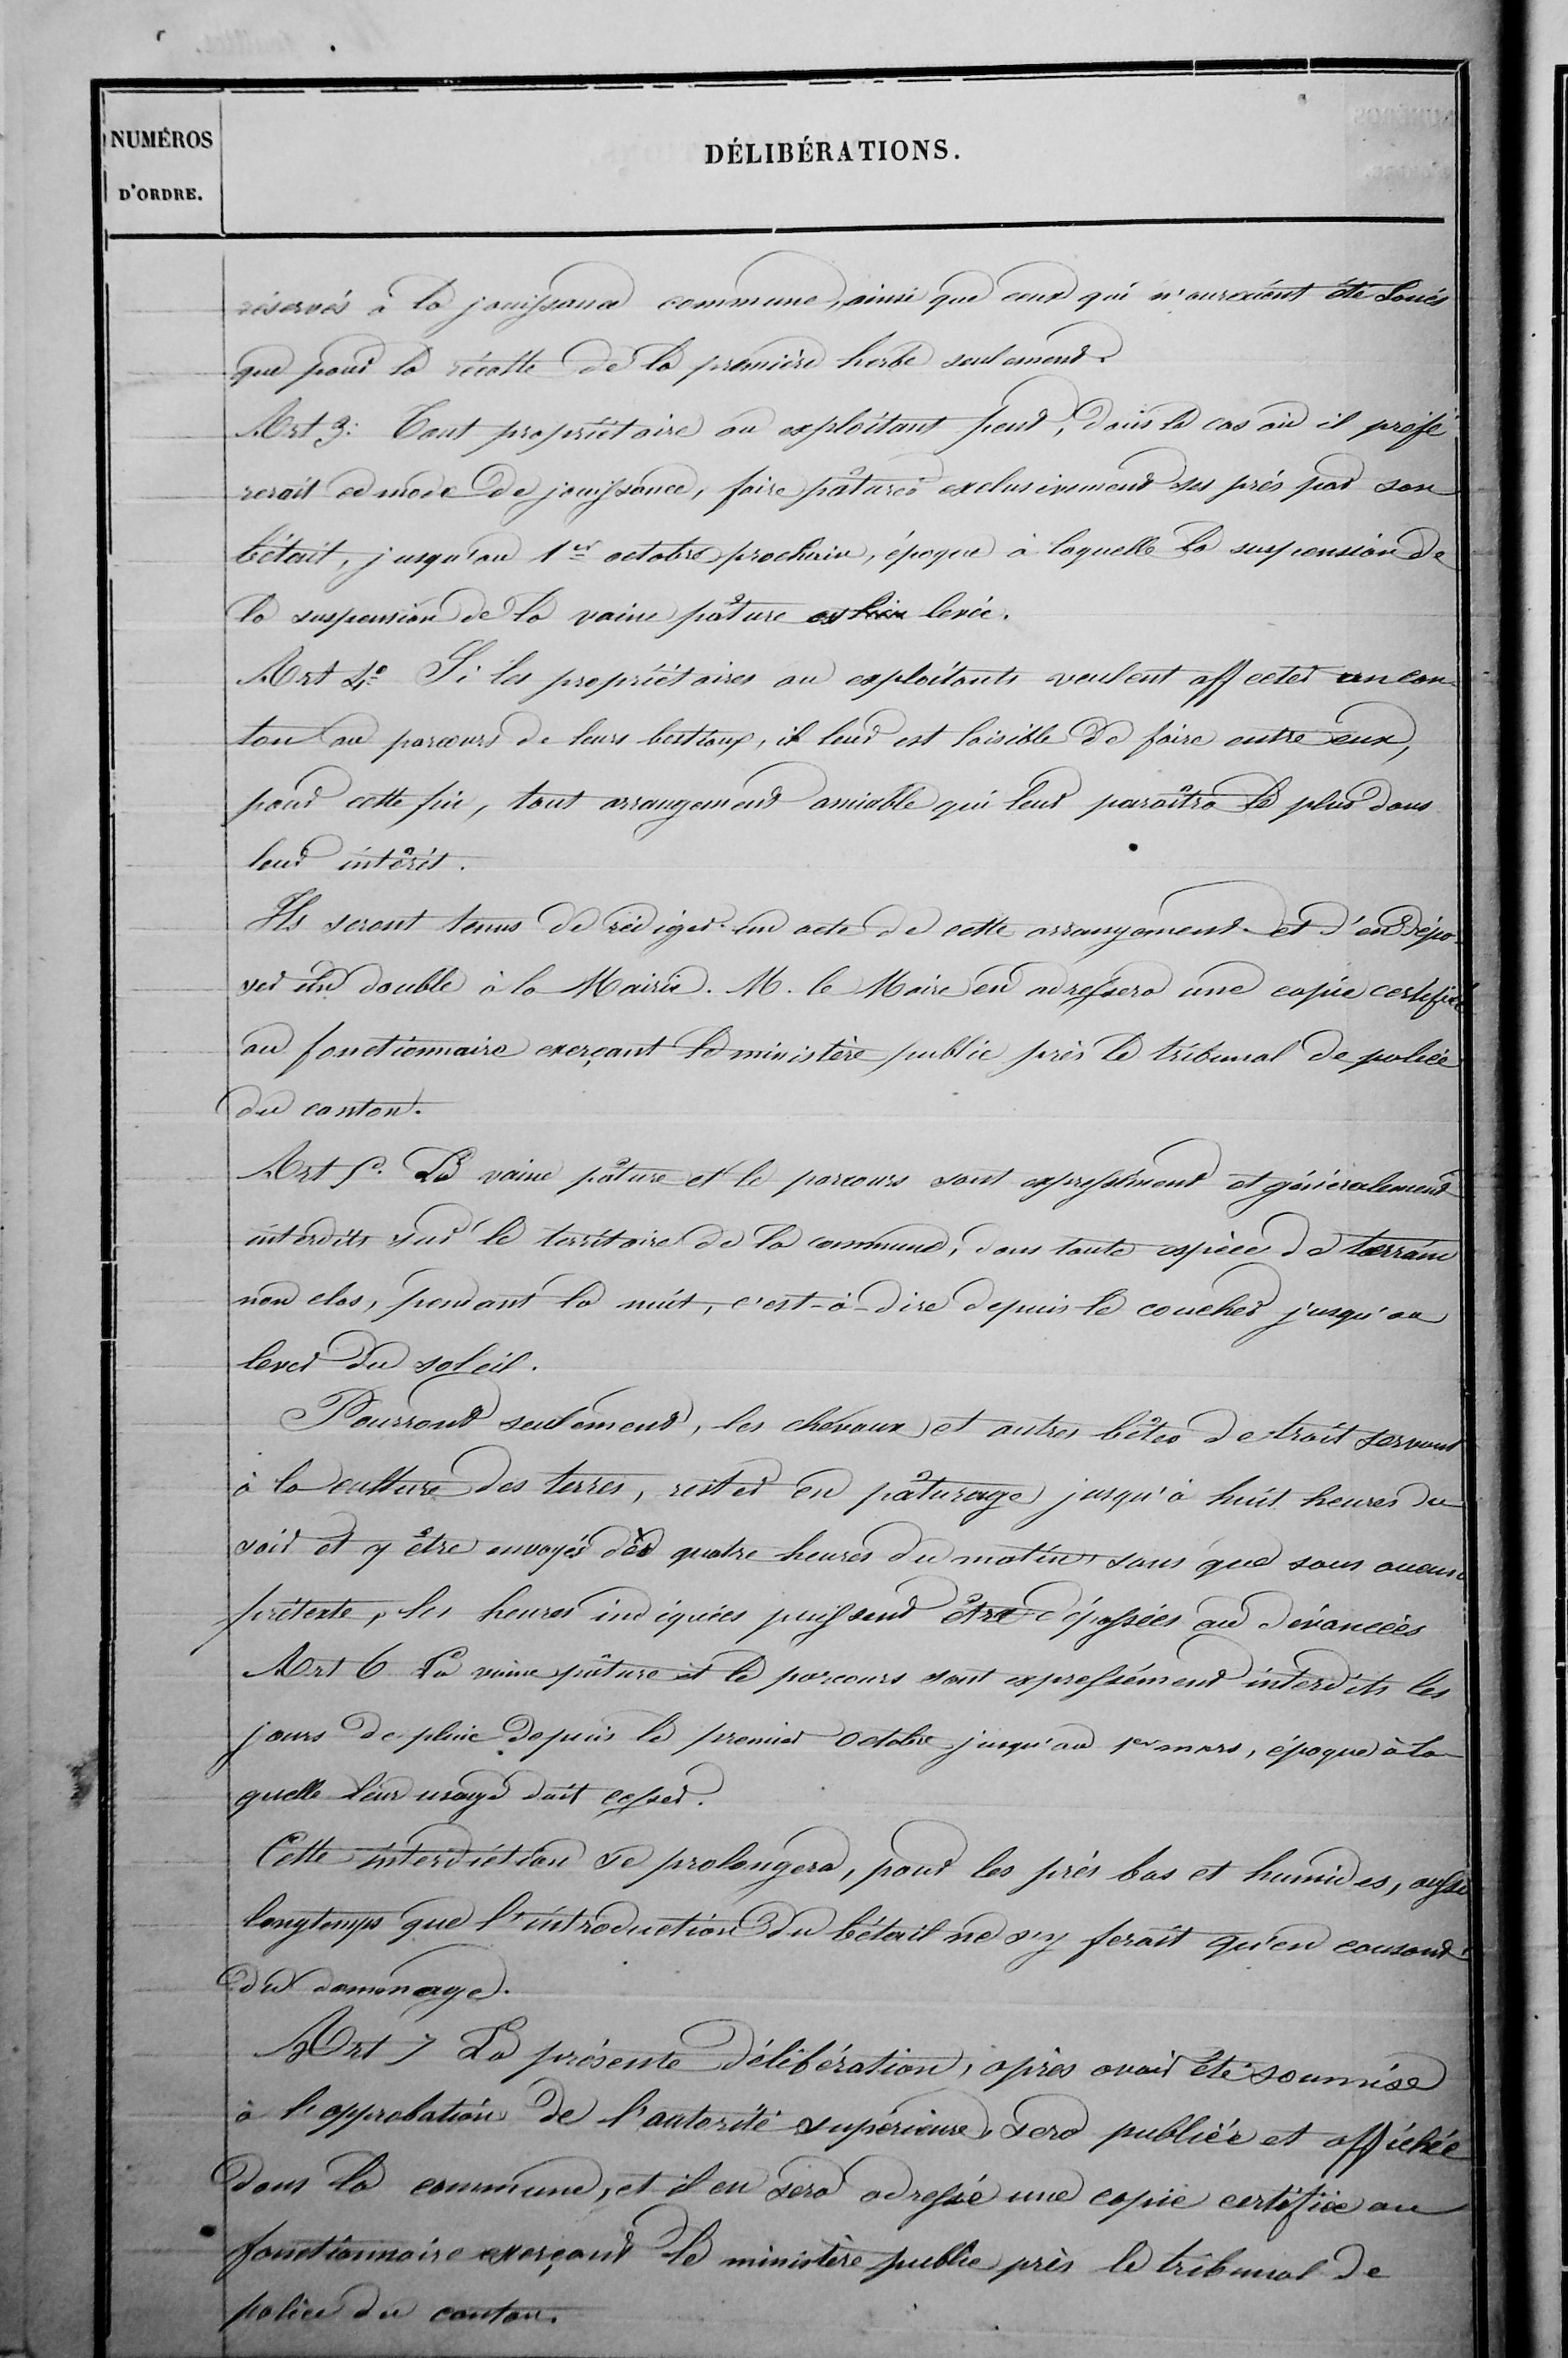 NUMÉROS
D'ORDRE.
DÉLIBÉRATIONS.
réservés à la jouissance commune, ainsi que ceux qui n'auraient été loués
que pour la récolte de la première herbe seulement.
Art 3: Tout propriétaire ou exploitant peut, dans le cas où il préfé
rerait ce mode de jouissance, faire pâturer exclusivement ses prés par son
bétail, jusqu'au 1er octobre prochain, époque à laquelle la suspension de
la suspension de la vaine pâture est levée.
Art 4e Si les propriétaires ou exploitants veulent affecter un can-
ton au parcours de leurs bestiaux, il leur est loisible de faire entre eux,
pour cette fin, tout arrangement amiable qui leur paraîtra le plus dans
leur intérêt.
Ils seront tenus de rédiger un acte de cette arrangement et d'en dépo-
ser un double à la Mairie. M. le Maire en adressera une copie certifiée
au fonctionnaire exerçant le ministère public près le tribunal de police
du canton.
Art 5e. La vaine pâture et le parcours sont expressément et généralement
interdits sur le territoire de la commune, dans toute espèce de terrain
non clos, pendant la nuit, c'est-à-dire depuis le coucher jusqu'au
lever du soleil.
Pourront seulement, les chevaux et autres bêtes de trait servant
à la culture des terres, rester en pâturage jusqu'à huit heures du
soir et y être envoyés dès quatre heures du matin, sans que sous aucun
prétexte, les heures indiquées puissent être dépassées ou devancées
Art 6 La vaine pâture et le parcours sont expressément interdits les
jours de pluie depuis le premier Octobre jusqu'au 1er mars, époque à la-
quelle leur usage doit cesser.
Cette interdiction se prolongera, pour les prés bas et humides, aussi
longtemps que l'introduction du bétail ne s'y ferait qu'en causant
du dommage.
Art 7 La présente délibération, après avoir été soumise
à l'approbation de l'autorité supérieure, sera publiée et affichée
dans la commune, et il en sera adressé une copie certifiée au
fonctionnaire exerçant le ministère public près le tribunal de
police du canton.